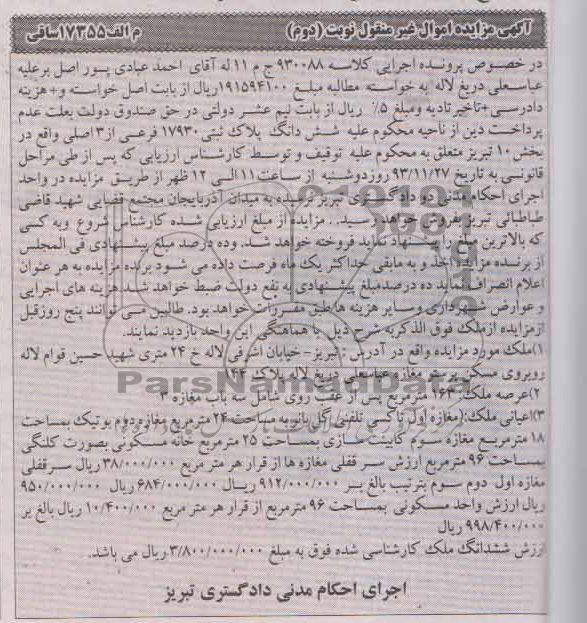 آگهی مزایده اموال غیر منقول نوبت (دوم) م الف ۱۷۳۵۵ساقی
در خصوص پرونده اجرایی کلاسه ۹۳۰۰۸۸ ج م ۱۱ له آقای احمد عبادی پور اصل برعلیه
عباسعلی دریغ لاله به خواسته مطالبه مبلغ ۱۹۱۵۹۴۱۰۰ریال از بابت اصل خواسته و+هزینه
دادرسی+تاخیر تادیه ومبلغ ۵٪ ریال از بابت نیم عشر دولتی در حق صندوق دولت بعلت عدم
پرداخت دین از ناحیه محکوم علیه شش دانگ پلاک ثبتی ۱۷۹۳۰ فرعی از ۳ اصلی واقع در
بخش ۱۰ تبریز متعلق به محکوم علیه توقیف و توسط کارشناس ارزیابی که پس از طی مراحل
قانونی به تاریخ ۹۳/۱۱/۲۷ روزدوشنبه از ساعت ۱۱الی ۱۲ ظهر از طریق مزایده در واحد
اجرای احکام مدنی دو دادگستری تبریز نرسیده به میدان آذربایجان مجتمع قضایی شهید قاضی
طباطبائی تبریز بفروش خواهد رسید. . مزایده از مبلغ ارزیابی شده کارشناس شروع وبه کسی
که بالاترین مبلغ را پیشنهاد نماید فروخته خواهد شد. وده درصد مبلغ پیشنهادی فی المجلس
از برنده مزایده اخذ و به مابقی حداکثر یک ماه فرصت داده می شود برنده مزایده به هر عنوان
اعلام انصراف نماید ده درصدمبلغ پیشنهادی به نفع دولت ضبط خواهد شد.هزینه های اجرایی
و عوارض شهرداری وسایر هزینه ها طبق مقررات خواهد بود. طالبین می توانند پنج روزقبل
ازمزایده ازملک فوق الذکر به شرح ذیل با هماهنگی این واحد بازدید نمایند.
۱)ملک مورد مزایده واقع در آدرس : تبریز– خیابان اشرفی لاله خ ۲۴ متری شهید حسین قوام لاله
روبروی مسکن پرستو مغازه وعباسعلی دریغ لاله پلاک ۱۴۴
۲)عرصه ملک: ۱۶۳ مترمربع پس از عقب روی شامل سه باب مغازه ۳
۳)اعیانی ملک:(مغازه اول تاکسی تلفنی گل بانو به مساحت ۲۴ مترمربع مغازه دوم بوتیک بمساحت
۱۸ مترمربع مغازه سوم کابینت سازی بمساحت ۲۵ مترمربع خانه مسکونی بصورت کلنگی
بمساحت ۹۶ مترمربع ارزش سر قفلی مغازه ها از قرار هر متر مربع ۳۸/۰۰۰/۰۰۰ ریال سرقفلی
مغازه اول دوم سوم بترتیب بالغ بر ۹۱۲/۰۰۰/۰۰۰ ریال ۶۸۴/۰۰۰/۰۰۰ ریال ۹۵۰/۰۰۰/۰۰۰
ریال ارزش واحد مسکونی بمساحت ۹۶ مترمربع از قرار هر متر مربع ۱۰/۴۰۰/۰۰۰ ریال بالغ بر
۹۹۸/۴۰۰/۰۰۰ ریال
ارزش ششدانگ ملک کارشناسی شده فوق به مبلغ ۳/۸۰۰/۰۰۰/۰۰۰ ریال می باشد.
اجرای احکام مدنی دادگستری تبریز
ParsNamadData